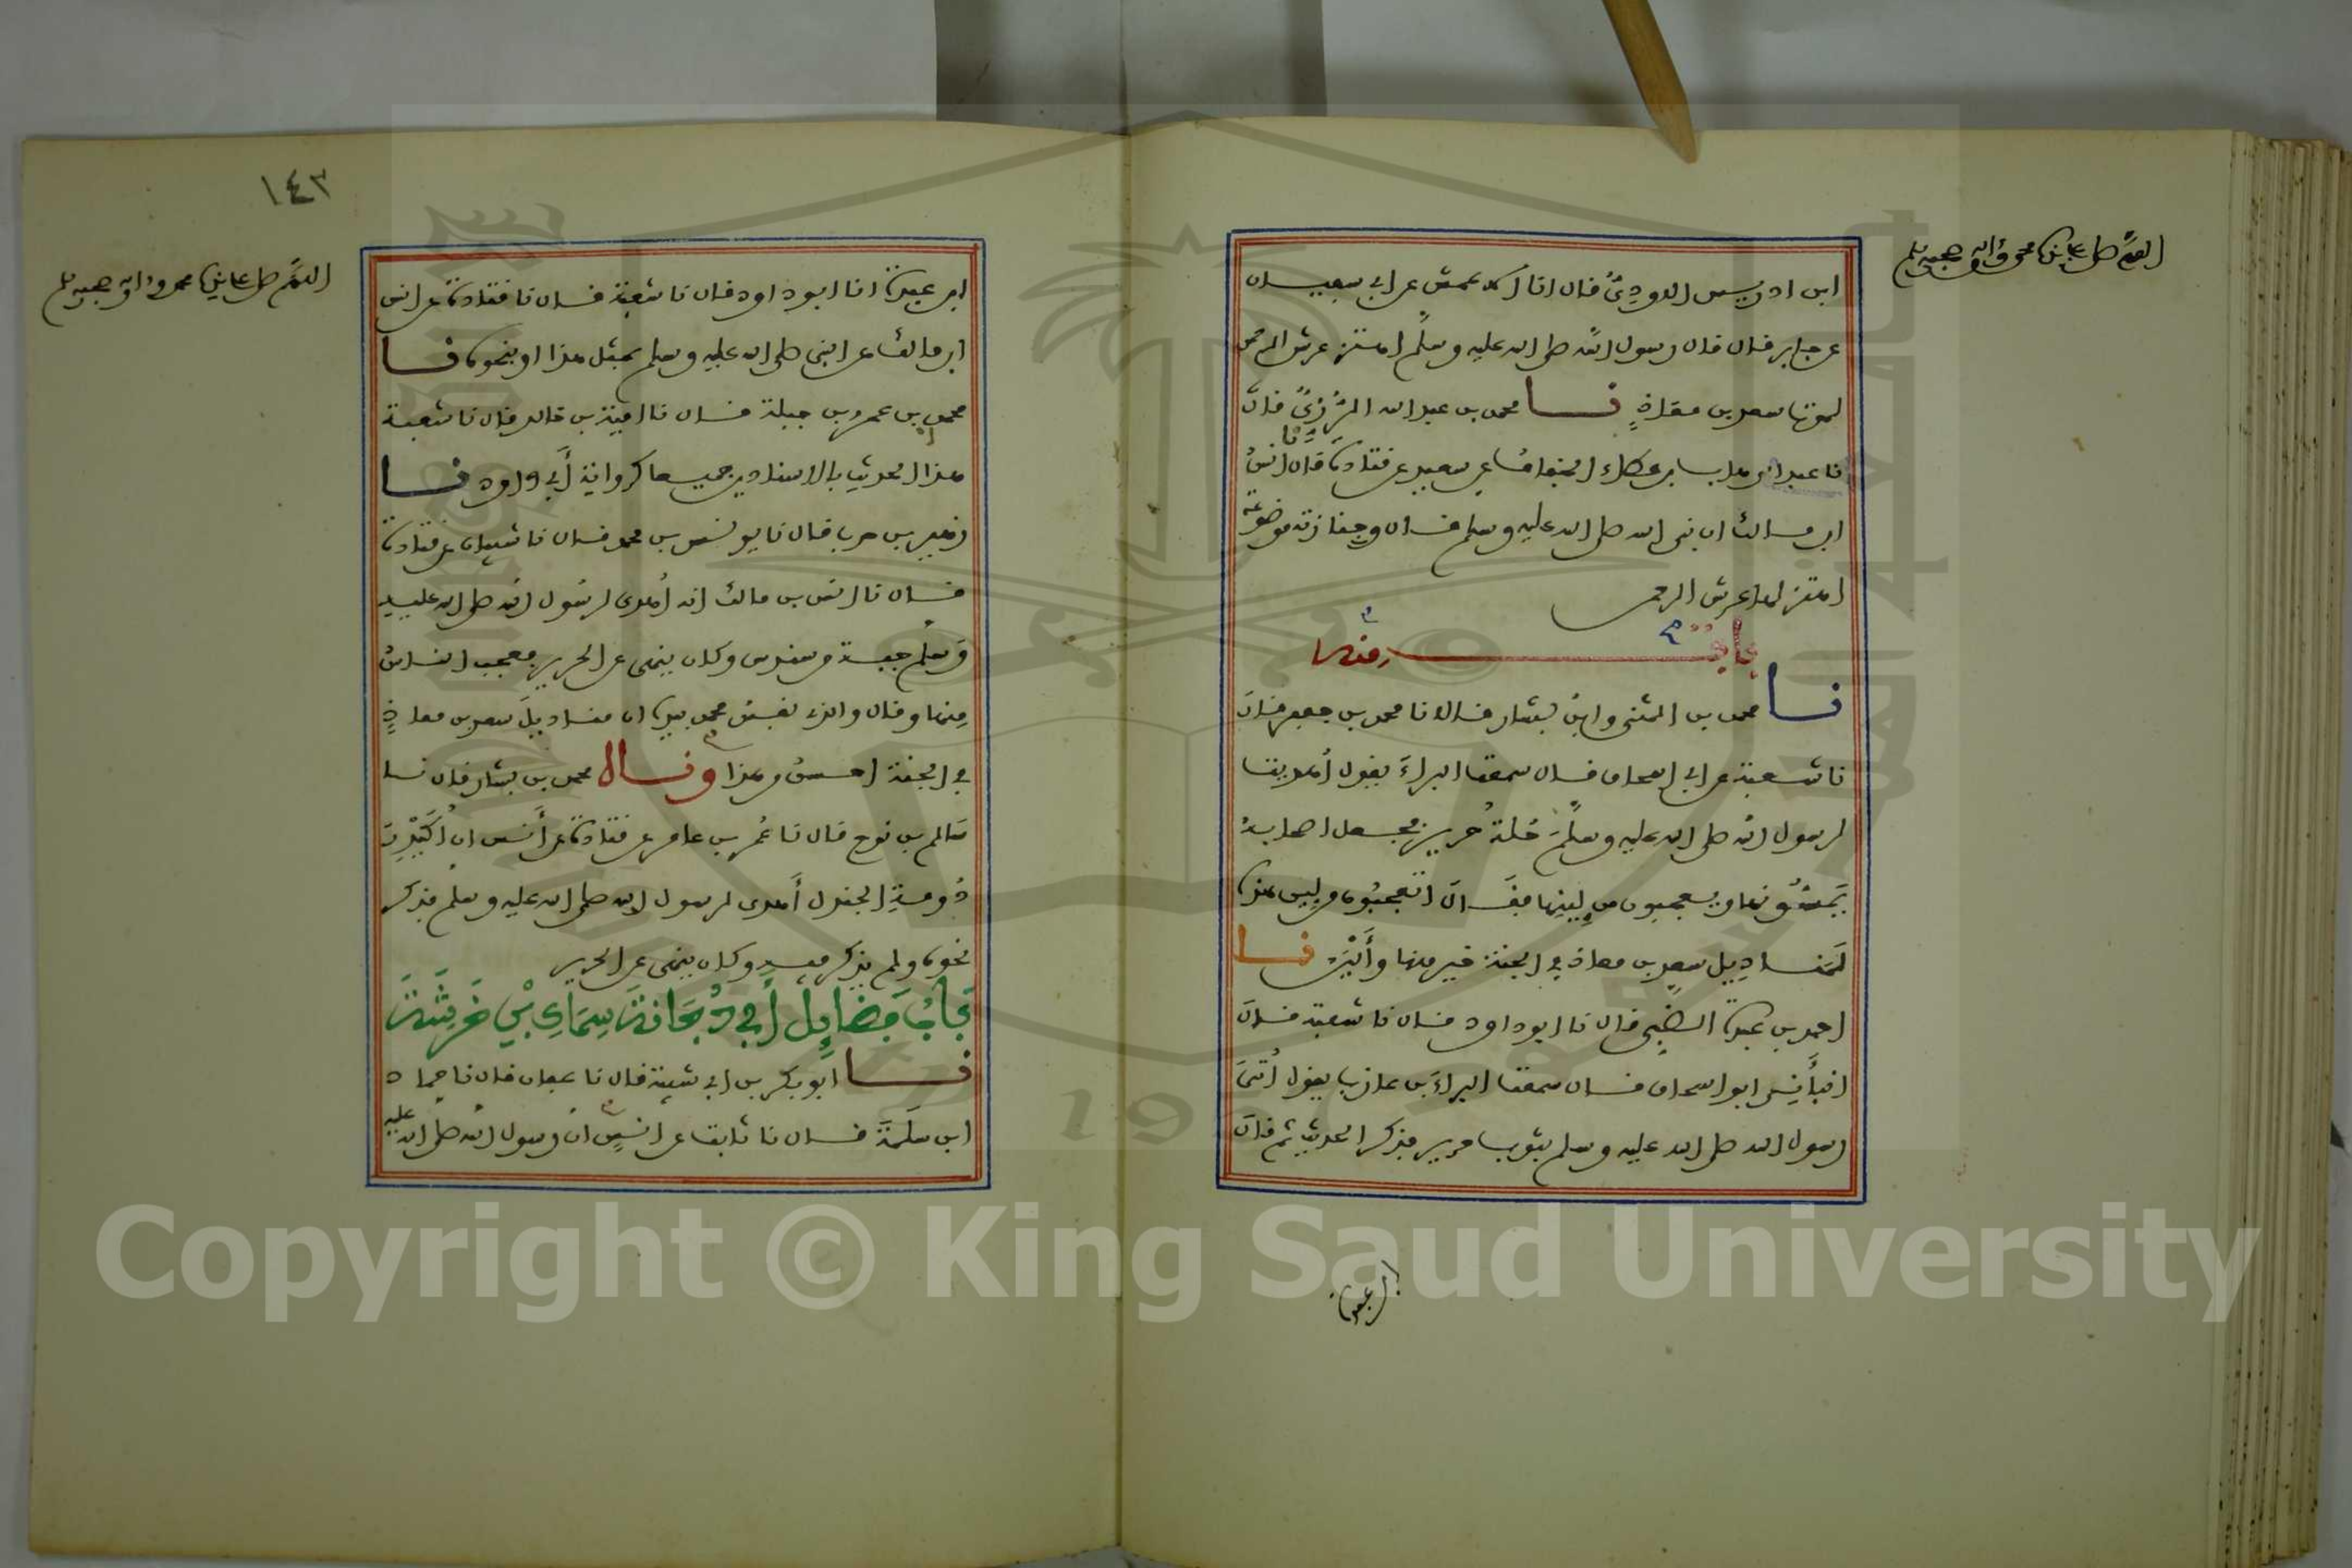 اللهم صل على سيدنا محمد واله وصحبه وسلم
ابن ادريس الاودي قال انا الاعمش عن ابي سفيان
عن جابر قال قال رسول الله صلى الله عليه وسلم اهتز عرش الرحمن
لموت سعد بن معاذ نا محمد بن عبد الله الرزي قال
نا عبد الوهاب بن عطاء الخفاف عن سعيد عن قتادة قال نا انس
ابن مالك ان نبي الله صلى الله عليه وسلم قال وجنازته موضوعة
اهتز لها عرش الرحمن
باب منه
نا محمد بن المثنى وابن بشار قالا نا محمد بن جعفر قال
نا شعبة عن ابي اسحاق قال سمعت البراء يقول اهديت
لرسول الله صلى الله عليه وسلم حلة حرير فجعل اصحابه
يمسونها ويعجبون من لينها فقال اتعجبون من لين هذه
لمناديل سعد بن معاذ في الجنة خير منها وألين نا
احمد بن عبدة الضبي قال نا ابو داود قال نا شعبة قال
انبأني ابو اسحاق قال سمعت البراء بن عازب يقول أتي
رسول الله صلى الله عليه وسلم بثوب حرير فذكر الحديث ثم قال
ابن عبدة
١٤٣
اللهم صل على سيدنا محمد واله وصحبه وسلم
ابن عبدة انا ابو داود قال نا شعبة قال نا قتادة عن انس
ابن مالك عن النبي صلى الله عليه وسلم بمثل هذا او بنحوه نا
محمد بن عمرو بن جبلة قال نا امية بن خالد قال نا شعبة
هذا الحديث بالاسنادين جميعا كرواية أبي داود نا
زهير بن حرب قال نا يونس بن محمد قال نا شيبان عن قتادة
قال نا انس بن مالك انه أهدى لرسول الله صلى الله عليه
وسلم جبة من سندس وكان ينهى عن الحرير فعجب الناس
منها وقال والذي نفس محمد بيده ان مناديل سعد بن معاذ
في الجنة احسن من هذا وقال محمد بن بشار قال نا
سالم بن نوح قال نا عمر بن عامر عن قتادة عن أنس ان أكيدر
دومة الجندل أهدى لرسول الله صلى الله عليه وسلم فذكر
نحوه ولم يذكر فيه وكان ينهى عن الحرير
باب فضايل أبي دجانة سماك بن خرشة
نا ابو بكر بن ابي شيبة قال نا عفان قال نا حماد
ابن سلمة قال نا ثابت عن انس ان رسول الله صلى الله عليه
Copyright © King Saud University
19